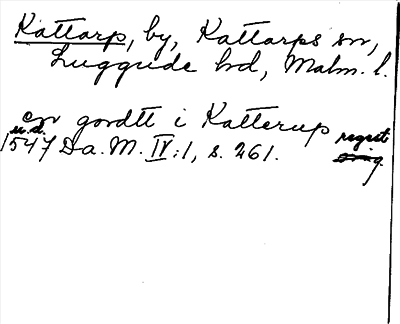 Kattarp, by, Kattarps sn,
Luggude hd, Malm. l.
en gordtt i Katterup
u.d. regist
1547 Da. M. IV:1, s. 261. orig.